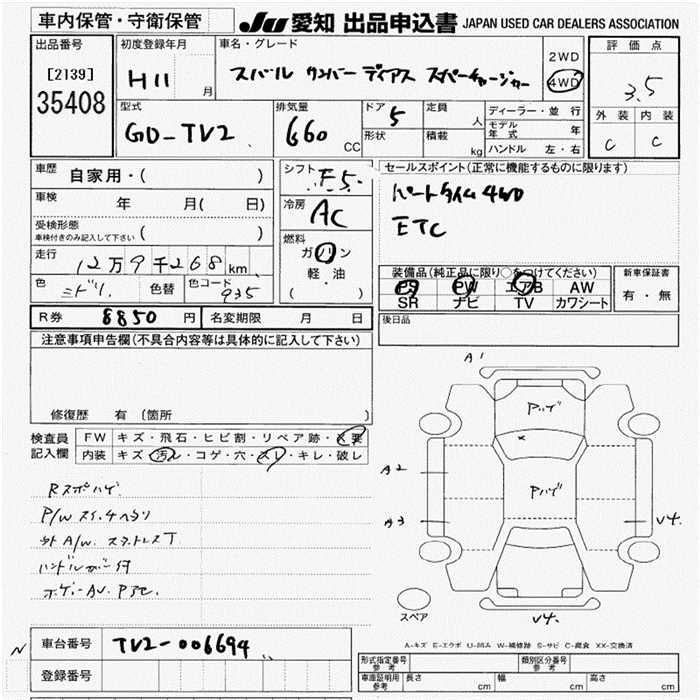 車内保管・守衛保管
JU 愛知 出品申込書 JAPAN USED CAR DEALERS ASSOCIATION
出品番号
[2139]
35408
初度登録年月
H11 月
車名・グレード
スバル サンバー ディアス スーパーチャージャー
2WD
4WD
評価点
3.5
外装 内装
C C
型式
GD-TV2
排気量
660 CC
ドア 5
形状
定員 人
積載 kg
ディーラー・並行
モデル年式 年
ハンドル 左・右
車歴
自家用・( )
車検 年 月( 日)
受検形態
車検付きのみ記入して下さい ( )
走行
12万9千268km
色 ミドリ 色替 色コード 935
シフト F5
冷房 AC
燃料
ガソリン
軽・油
( )
セールスポイント(正常に機能するものに限ります)
パートタイム4WD
ETC
装備品(純正品に限り○をつけてください)
PS PW エアB AW
SR ナビ TV カワシート
新車保証書
有・無
R券 8850円 名変期限 月 日
後日品
注意事項申告欄(不具合内容等は具体的に記入して下さい)
修復歴 有(箇所 )
検査員記入欄
FW キズ・飛石・ヒビ割・リペア跡・X要
内装 キズ・汚レ・コゲ・穴・スレ・キレ・破レ
P/W スイ.4ヘコリ
ハンドルカバー付
A1
Pハゲ
A2
Pハゲ
A3
V4.
V4.
スペア
A-キズ E-エクボ U-凹ミ W-補修跡 S-サビ C-腐食 XX-交換済
N
車台番号 TV2-006694
登録番号
形式指定番号 参考
類別区分番号 参考
車庫証明用 参考 長さ cm 幅 cm 高さ cm